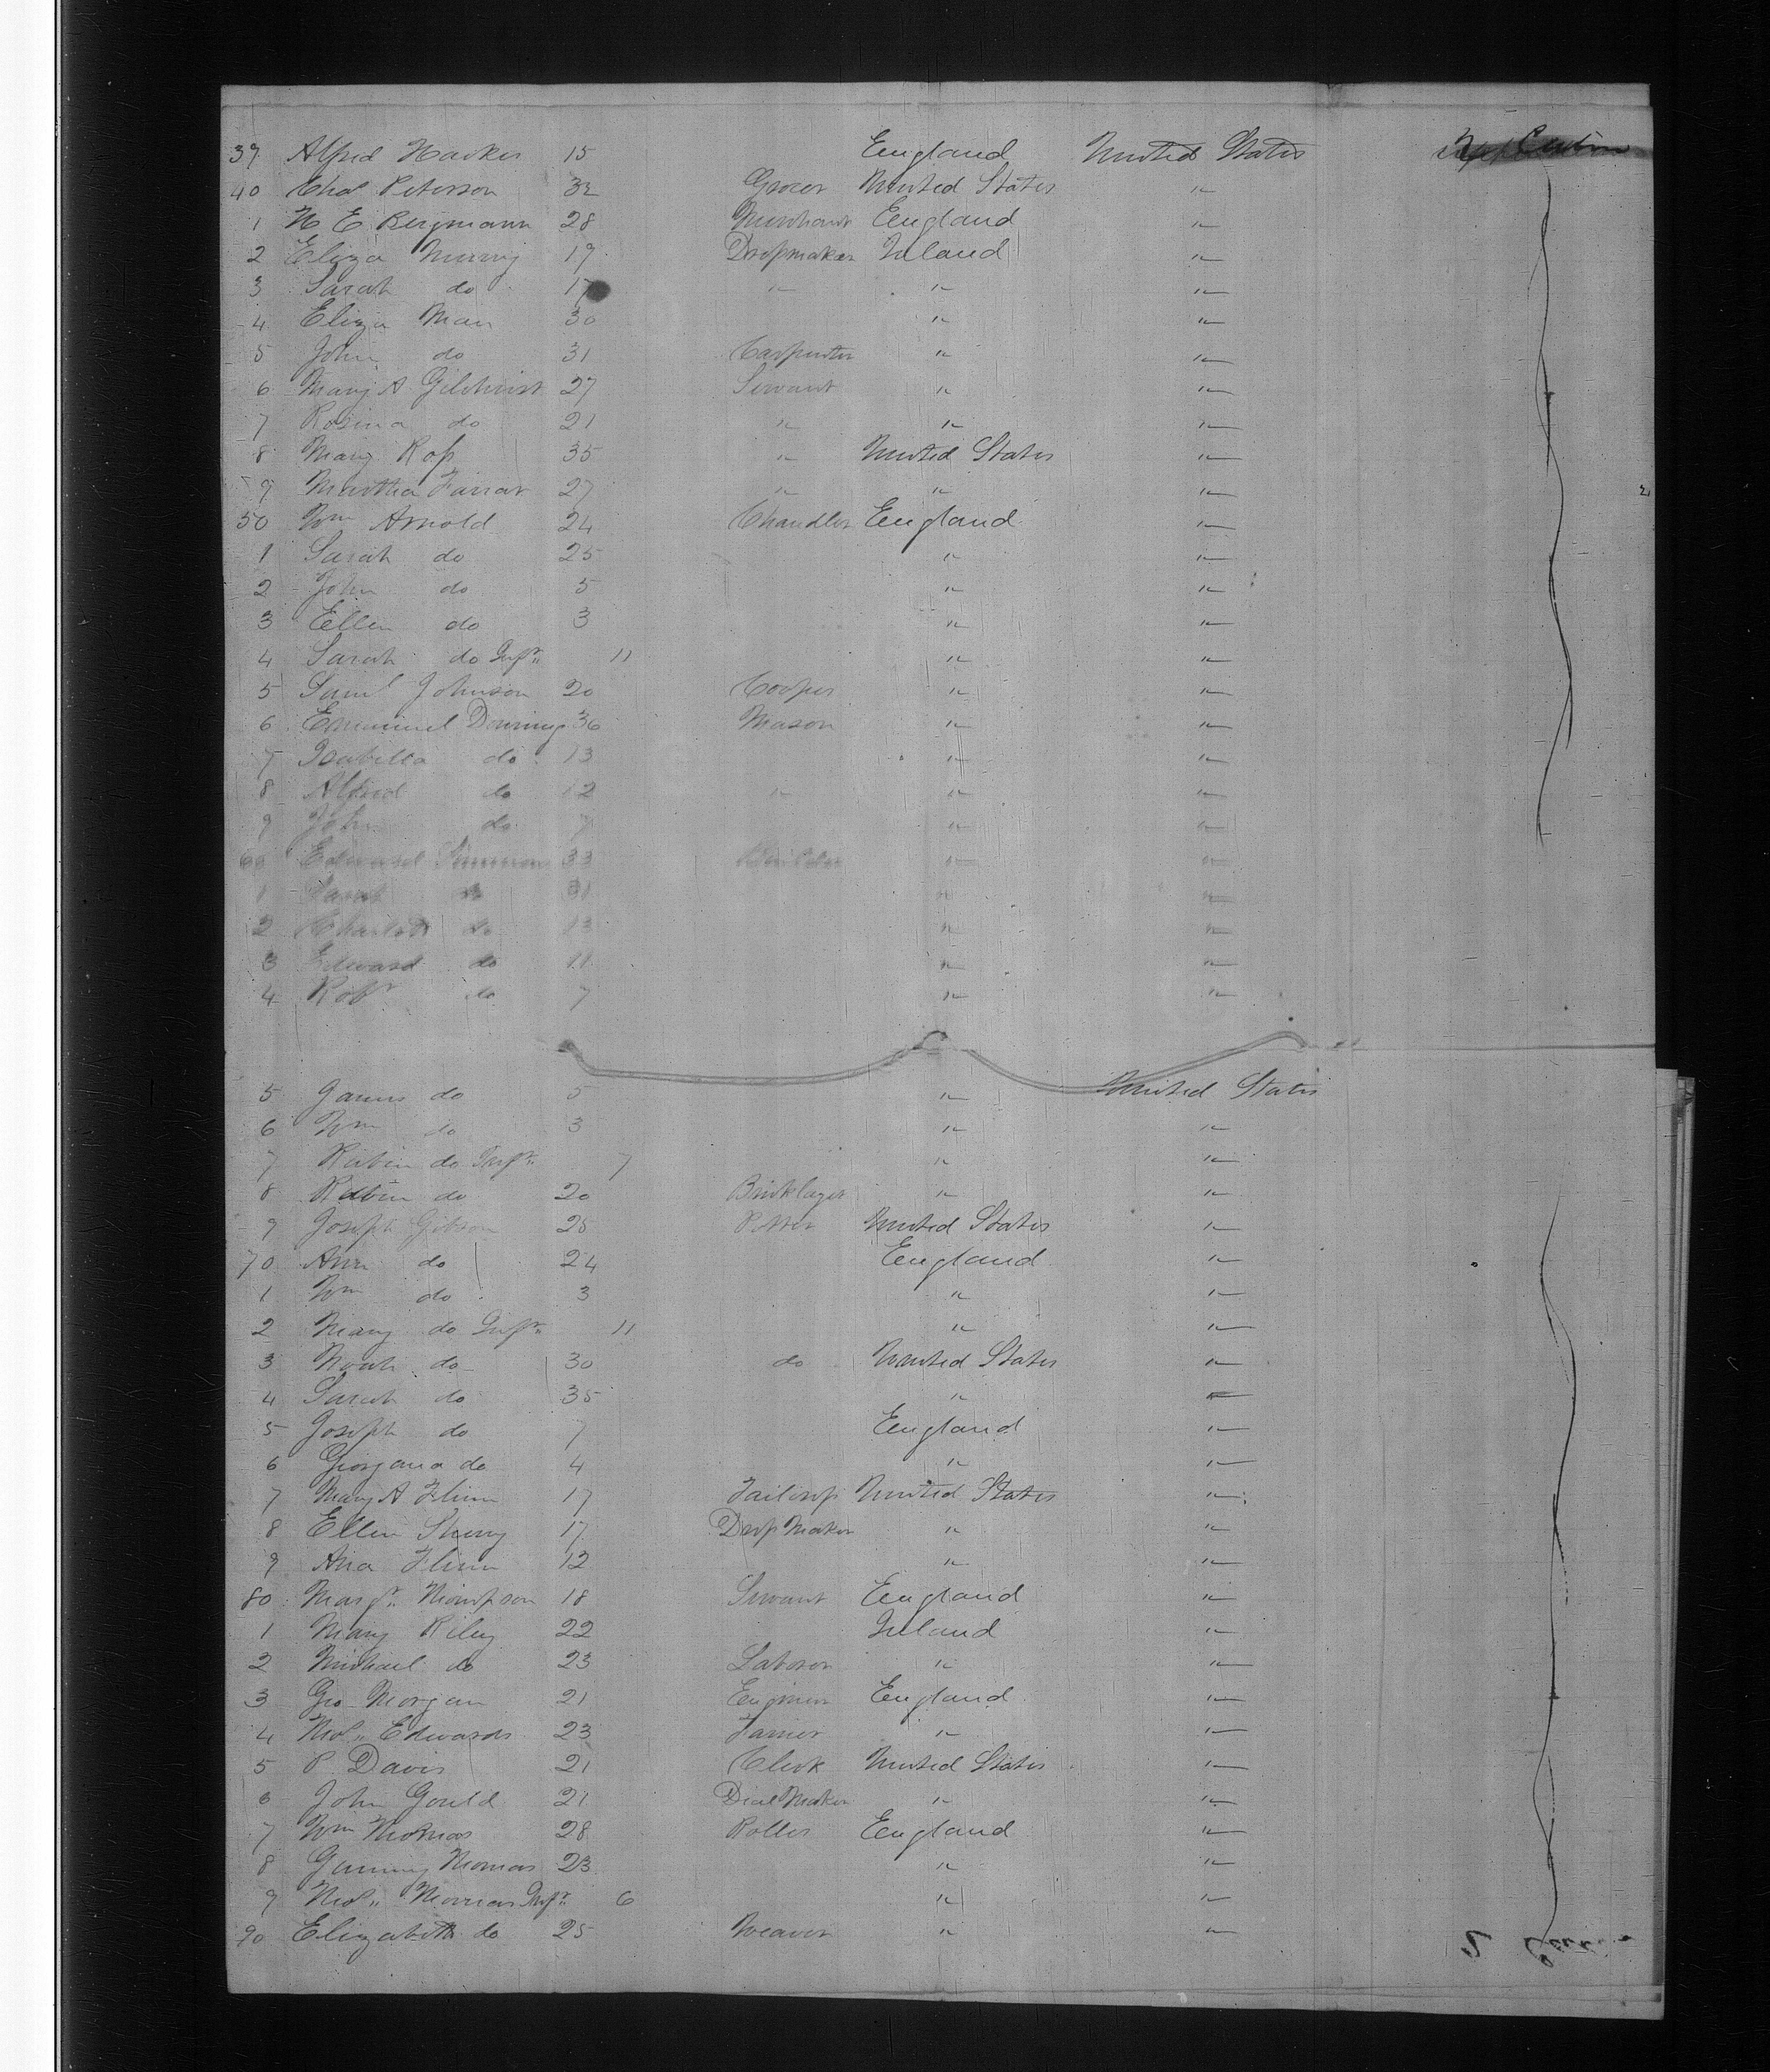 39 Alfred Hawkes 15 England United States
40 Chas Peterson 32 Grocer United States "
1 H E Bergmann 28 Merchant England "
2 Eliza Murray 19 Dressmaker Ireland "
3 Sarah do 17 " " "
4 Eliza Man 30 " "
5 John do 31 Carpenter " "
6 Mary A Gilchrist 27 Servant " "
7 Rosina do 21 " " "
8 Mary Ross 35 " United States "
9 Martha Farrar 27 " " "
50 Wm Arnold 24 Chandler England "
1 Sarah do 25 " "
2 John do 5 " "
3 Ellen do 3 " "
4 Sarah do Inft 11 " "
5 Saml Johnson 20 Cooper " "
6 Emanuel Downing 36 Mason " "
7 Isabella do 13 " "
8 Alfred do 12 " " "
9 John do 7 " "
60 Edward Simmons 33 Builder " "
1 Sarah do 31 " "
2 Charlott do 13 " "
3 Edward do 11 " "
4 Robt do 7 " "
5 James do 5 " United States
6 Wm do 3 " "
7 Rubin do Inft 7 " "
8 Rubin do 20 Bricklayer " "
9 Joseph Gibson 25 Potter United States "
70 Ann do 24 England "
1 Wm do 3 " "
2 Mary do Inft 11 " "
3 Noah do 30 do United States "
4 Sarah do 35 " "
5 Joseph do 7 England "
6 Georgana do 4 " "
7 Mary A Flinn 17 Tailoress United States "
8 Ellen Sherry 17 Dress Maker " "
9 Ana Flinn 12 " "
80 Margt Thompson 18 Servant England "
1 Mary Riley 22 Ireland "
2 Michael do 23 Laborer " "
3 Geo Morgan 21 Engineer England "
4 Thos Edwards 23 Farrier " "
5 P Davis 21 Clerk United States "
6 John Gould 21 Dial Maker " "
7 Wm Thomas 28 Roller England "
8 Thomas 23 " "
9 Thos Thomas Inft 6 " "
90 Elizabeth do 25 Weaver " "